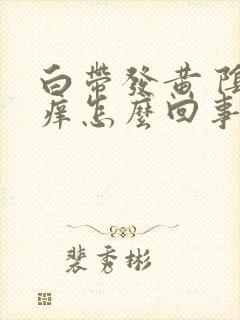 白帶發黃陰
痒怎麼回事
裴秀彬